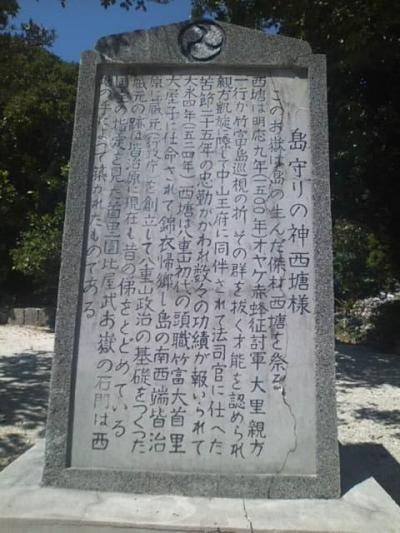 島守りの神西塘様
このお嶽は島の生んだ傑材西塘を祭る
西塘は明応九年(一五〇〇年)オヤケ赤蜂征討軍 大里親方
一行が竹富島巡視の折 その群を抜く才能を認められ
親方凱旋に際して中山王府に同伴されて法司官に仕へた
苦節二十五年の忠勤がかわれ数々の功績が報いられて
大永四年(一五二四年) 西塘は八重山初代の頭職竹富大首里
大屋子に任命されて錦衣帰郷し島の南西端皆治
原に蔵元(行政庁)を創立して八重山政治の基礎をつくった
蔵元の跡は皆治原に現在も昔の俤をとどめている
国宝の指定を見た首里園比屋武お嶽の石門は西
塘の手によって築かれたものである